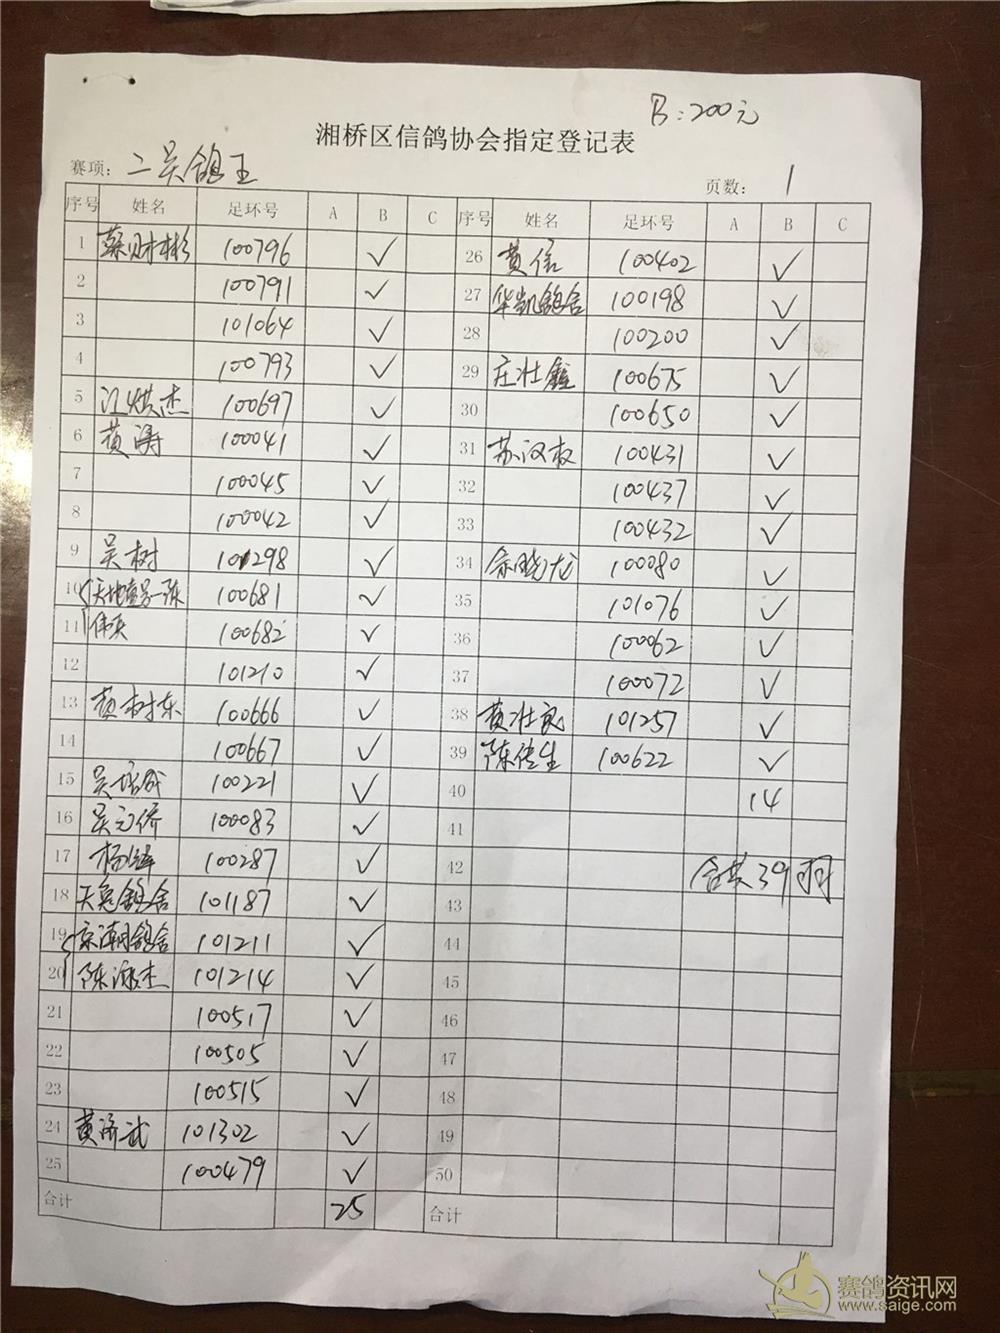 B:200元
湘桥区信鸽协会指定登记表
赛项: 二吴鸽王
页数: 1
序号 姓名 足环号 A B C 序号 姓名 足环号 A B C
1 蔡财彬 100796 ✓ 26 黄信 100402 ✓
2 100791 ✓ 27 华凯鸽舍 100198 ✓
3 101064 ✓ 28 100200 ✓
4 100793 ✓ 29 庄壮鑫 100675 ✓
5 江烘杰 100697 ✓ 30 100650 ✓
6 黄涛 100041 ✓ 31 苏汉权 100431 ✓
7 100045 ✓ 32 100437 ✓
8 100042 ✓ 33 100432 ✓
9 吴树 101298 ✓ 34 余晓龙 100080 ✓
10 天地 100681 ✓ 35 101076 ✓
11 100682 ✓ 36 100062 ✓
12 101210 ✓ 37 100072 ✓
13 黄树东 100666 ✓ 38 黄壮良 101257 ✓
14 100667 ✓ 39 陈传生 100622 ✓
15 吴培成 100221 ✓ 40 14
16 吴元侨 100083 ✓ 41
17 杨锋 100287 ✓ 42 合共39羽
18 天兔鸽舍 101187 ✓ 43
19 京潮鸽舍 101211 ✓ 44
20 陈 杰 101214 ✓ 45
21 100517 ✓ 46
22 100505 ✓ 47
23 100515 ✓ 48
24 黄济武 101302 ✓ 49
25 100479 ✓ 50
合计 25 合计
赛鸽资讯网
www.saige.com